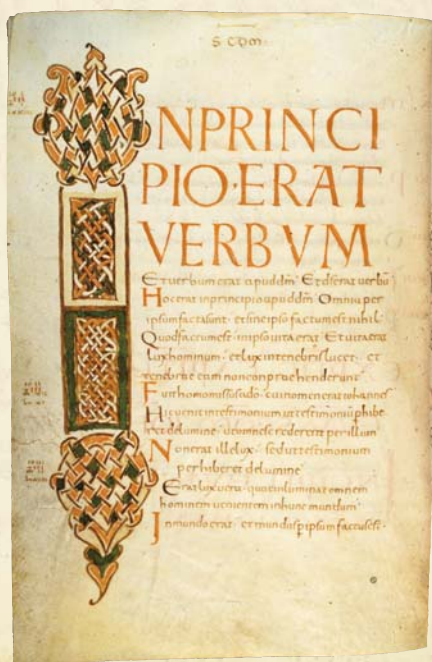 INPRINCI
PIO·ERAT
VERBVM
Et uerbum erat apud dm̄ Et ds̄ erat uerbū
Hoc erat in principio apud dm̄ Omnia per
ipsum facta sunt · et sine ipso factum est nihil ·
Quod factum est · in ipso uita erat · Et uita erat
lux hominum · et lux in tenebris lucet · et
tenebrae eam non conprae henderunt
Fuit homo missus a dō · cui nomen erat iohannes
Hic uenit in testimonium ut testimoniū phibe
ret de lumine · ut omnes crederent per illum
Non erat ille lux · sed ut testimonium
perhiberet de lumine
Erat lux uera · quae inluminat omnem
hominem uenientem in hunc mundum ·
In mundo erat · et mundus p ipsum factus est ·